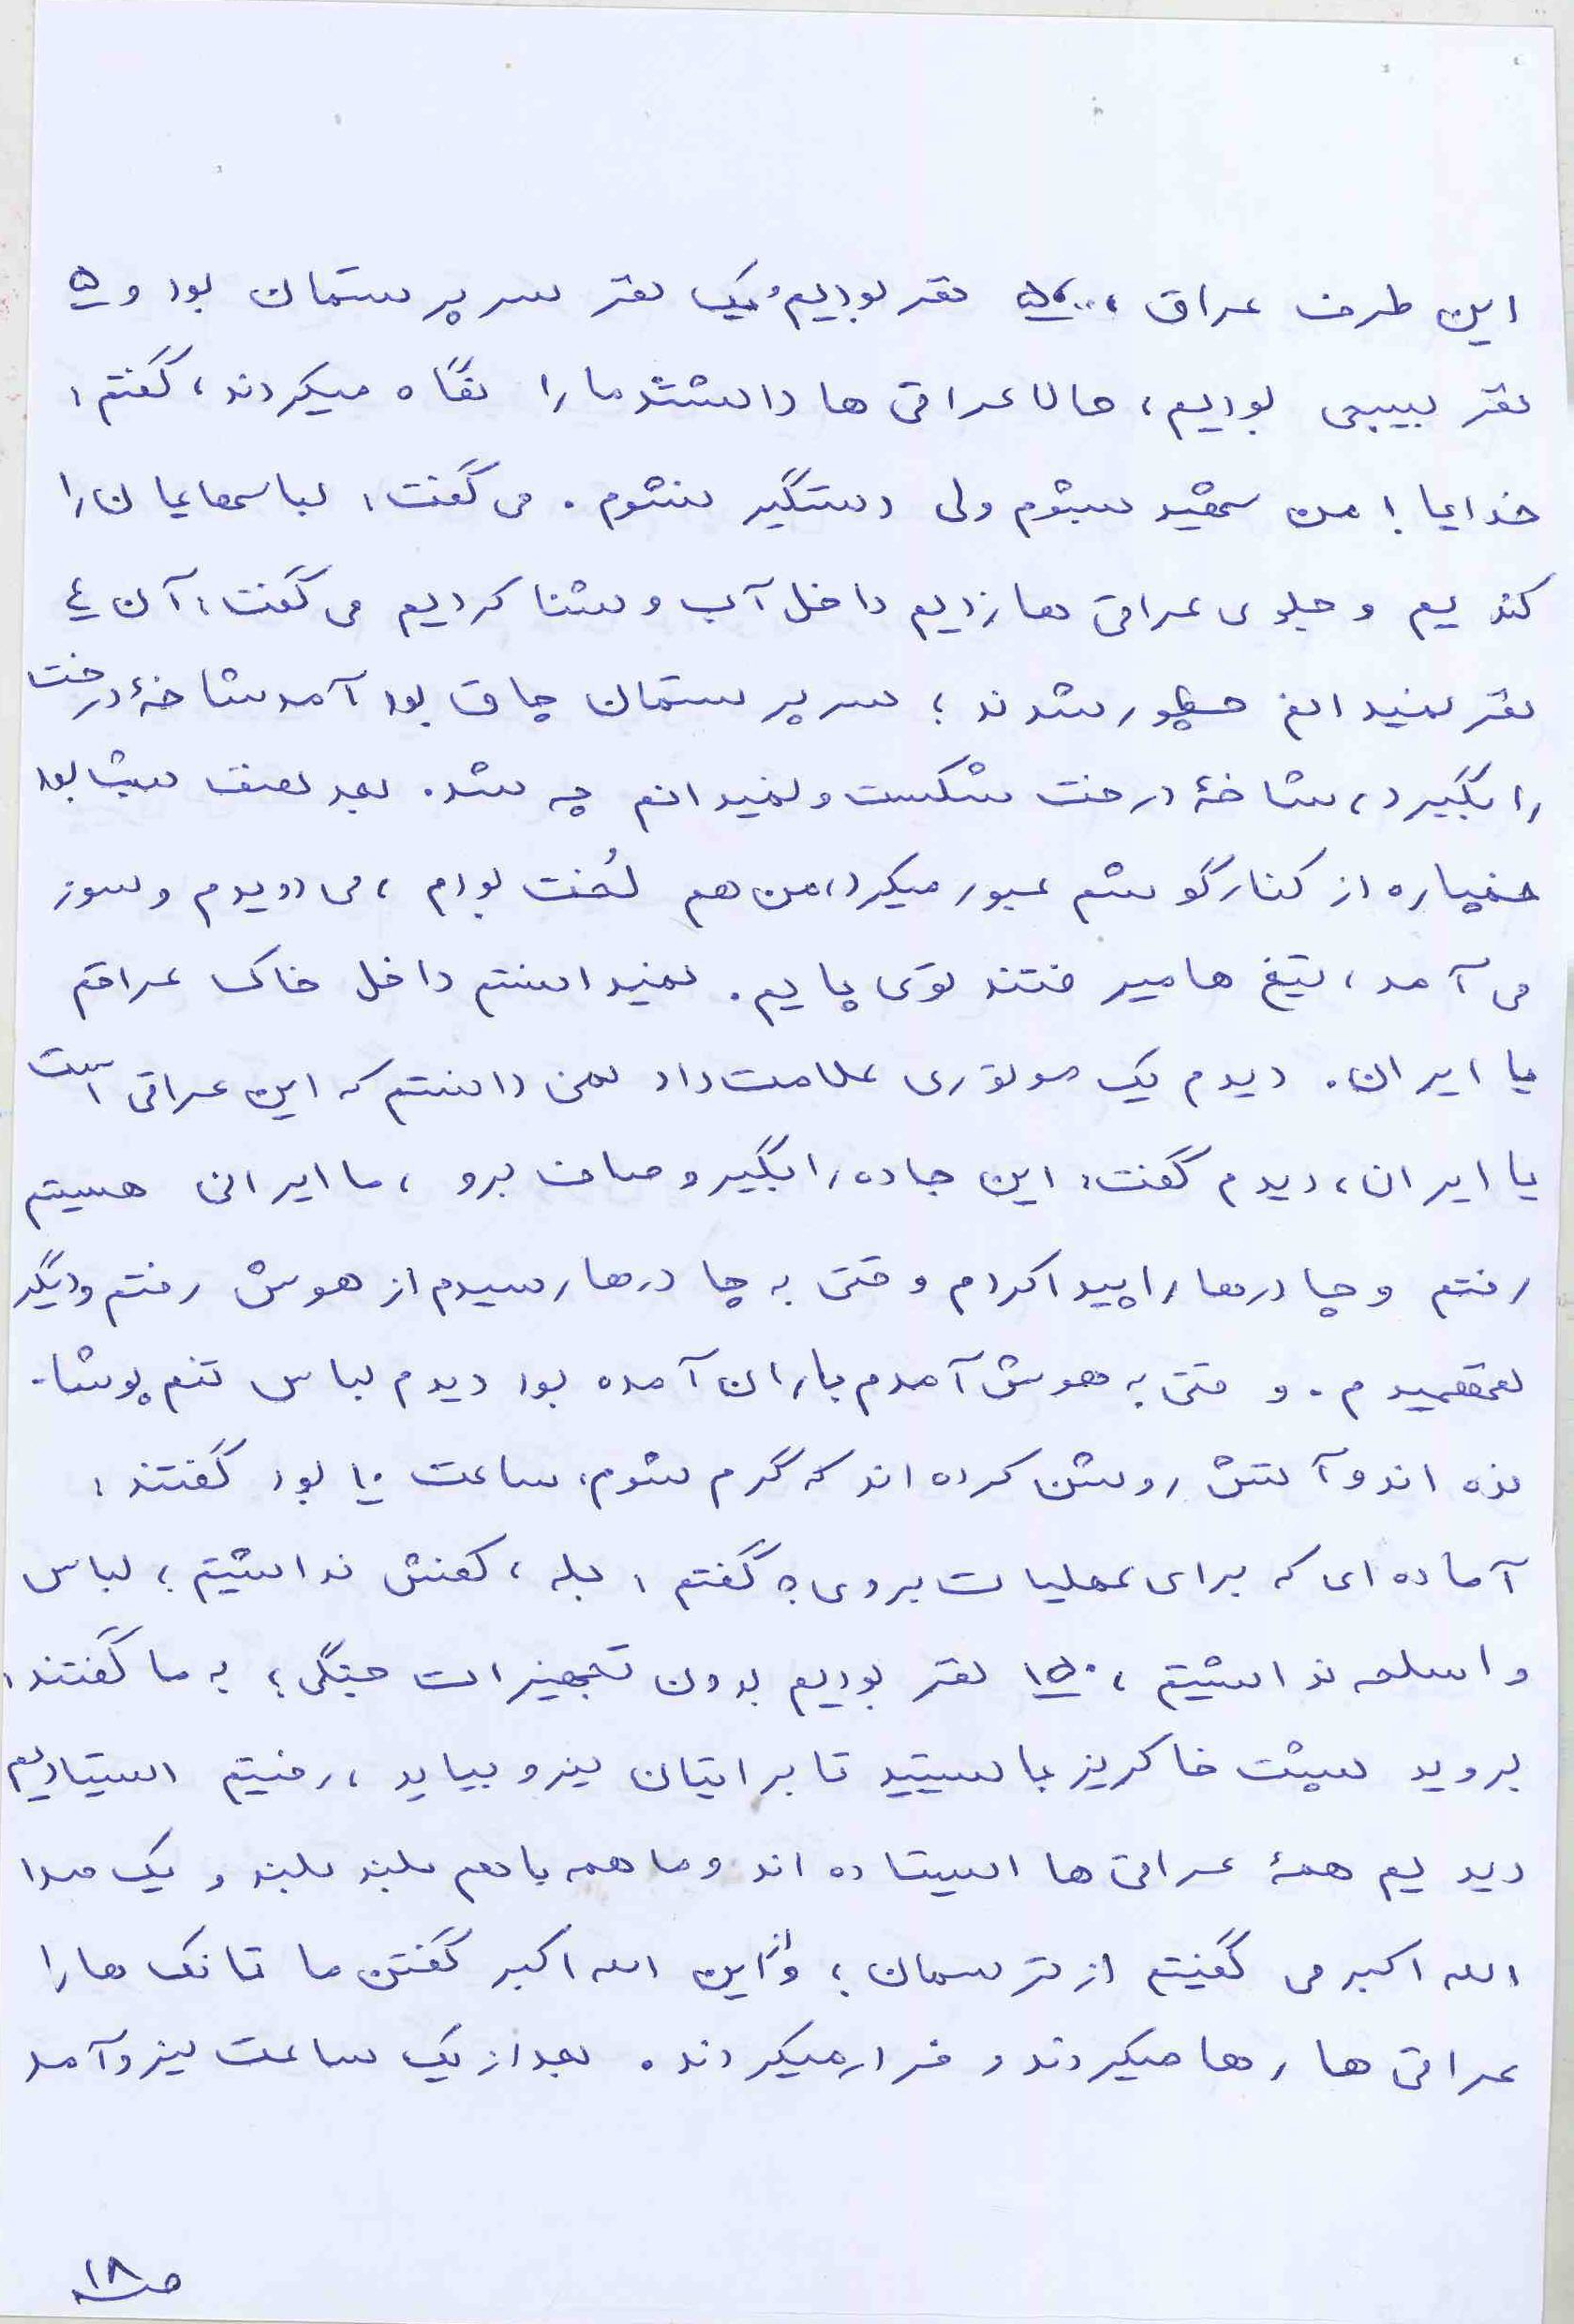 این طرف عراق، ۵۰۰ نفر بودیم و یک نفر سرپرستمان بود و ۵
نفر بسیجی بودیم، حالا عراقی ها داشتند ما را نگاه میکردند، گفتم:
خدایا! من شهید بشوم ولی دستگیر نشوم. می گفت: لباسهایمان را
کندیم و جلوی عراقی ها زدیم داخل آب و شنا کردیم می گفت: آن ٤
نفر نمیدانم چطور شدند؛ سرپرستمان چاق بود آمد شاخهٔ درخت
را بگیرد، شاخهٔ درخت شکست و نمیدانم چه شد. بعد نصف شب بود
خمپاره از کنار گوشم عبور میکرد، من هم لُخت بودم، می دویدم و سوز
می آمد، تیغ ها میرفتند توی پایم. نمیدانستم داخل خاک عراقم
یا ایران. دیدم یک موتوری علامت داد نمی دانستم که این عراقی است
یا ایران، دیدم گفت: این جاده را بگیر و صاف برو، ما ایرانی هستیم
رفتم و چادرها را پیدا کردم وقتی به چادرها رسیدم از هوش رفتم و دیگر
نفهمیدم. وقتی به هوش آمدم باران آمده بود دیدم لباس تنم پوشا-
نده اند و آتش روشن کرده اند که گرم شوم، ساعت ۱۰ بود گفتند:
آماده ای که برای عملیات بروی؟ گفتم: بله، کفش نداشتیم؛ لباس
و اسلحه نداشتیم، ۱۵۰ نفر بودیم بدون تجهیزات جنگی؛ به ما گفتند:
بروید پشت خاکریز بایستید تا برایتان نیرو بیاید، رفتیم ایستادیم
دیدیم همهٔ عراقی ها ایستاده اند و ما همه با هم بلند بلند و یک صدا
الله اکبر می گفتیم از ترسمان؛ و از این الله اکبر گفتن ما تانک ها را
عراقی ها رها میکردند و فرار میکردند. بعد از یک ساعت نیرو آمد
ص ۱۸